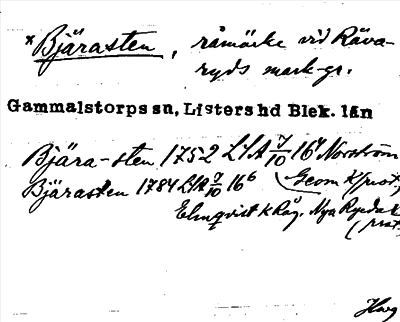 *Bjärasten, råmärke vid Råva-
ryds mark-gr.
Gammalstorps sn, Listers hd Blek. län
Bjära-sten 1752 LSA 7/10 16⁴ Norström
Bjärasten 1784 LSA 7/10 16⁶ (Geom K/prot.)
Elmqvist K Råg. Nya Ryeda K
(prot.)
Haag